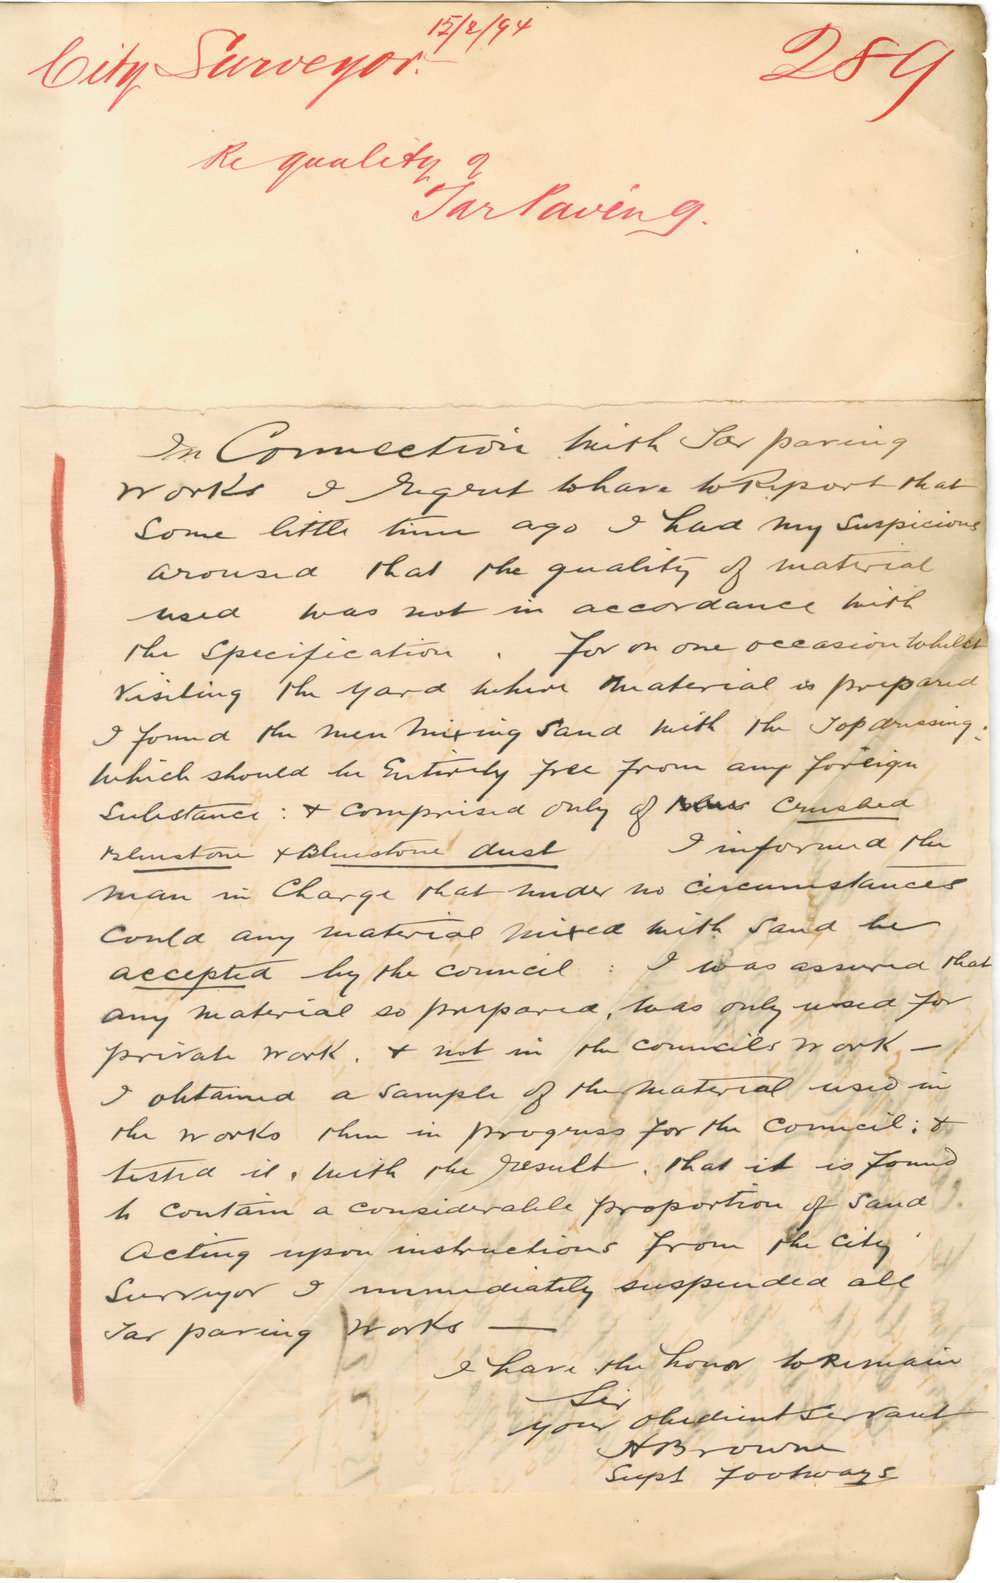 15/2/94
City Surveyor.
289
Re quality of
Tar Paving.
In Connection with Tar paving
works I Regret to have to Report that
some little time ago I had my suspicions
aroused that the quality of material
used was not in accordance with
the specification . For on one occasion whilst
visiting the yard where material is prepared
I found the men mixing sand with the Topdressing:
which should be Entirely free from any foreign
substance : & comprised only of crushed
bluestone & Bluestone dust I informed the
man in charge that under no circumstances
could any material mixed with sand be
accepted by the council : I was assured that
any material so prepared, was only used for
private work. & not in the councils work —
I obtained a sample of the material used in
the works then in progress for the council; &
tested it, with the result. that it is found
to contain a considerable proportion of sand
Acting upon instructions from the city
surveyor I immediately suspended all
Tar paving works —
I have the honor to Remain
Sir
your obedient servant
HBrowne
Supt Footways